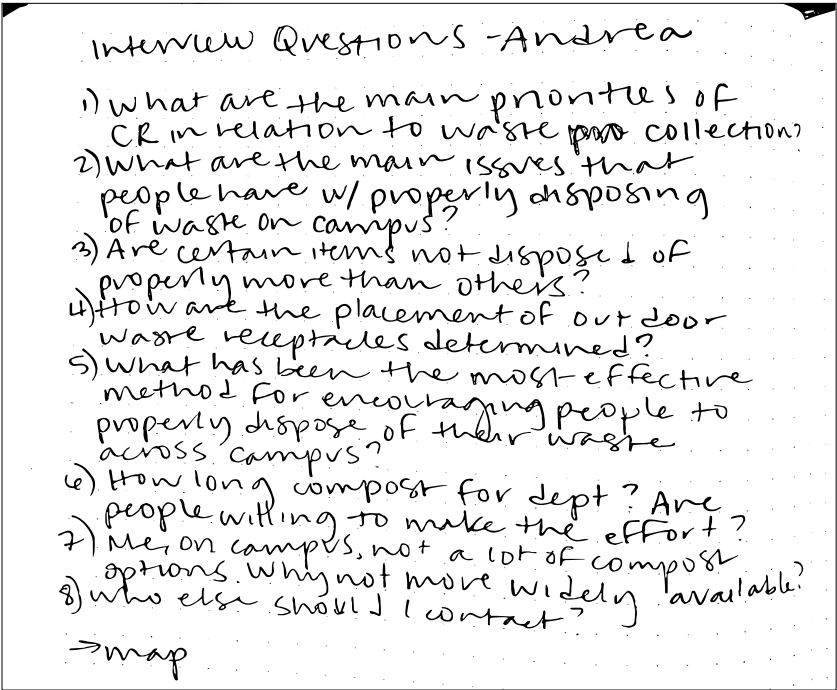 Interview Questions - Andrea
1) What are the main priorities of
CR in relation to waste collection?
2) What are the main issues that
people have w/ properly disposing
of waste on campus?
3) Are certain items not disposed of
properly more than others?
4) How are the placement of outdoor
waste receptacles determined?
5) What has been the most effective
method for encouraging people to
properly dispose of their waste
across campus?
6) How long compost for dept? Are
people willing to make the effort?
7) Me, on campus, not a lot of compost
options. Why not more widely available?
8) Who else should I contact?
→ map